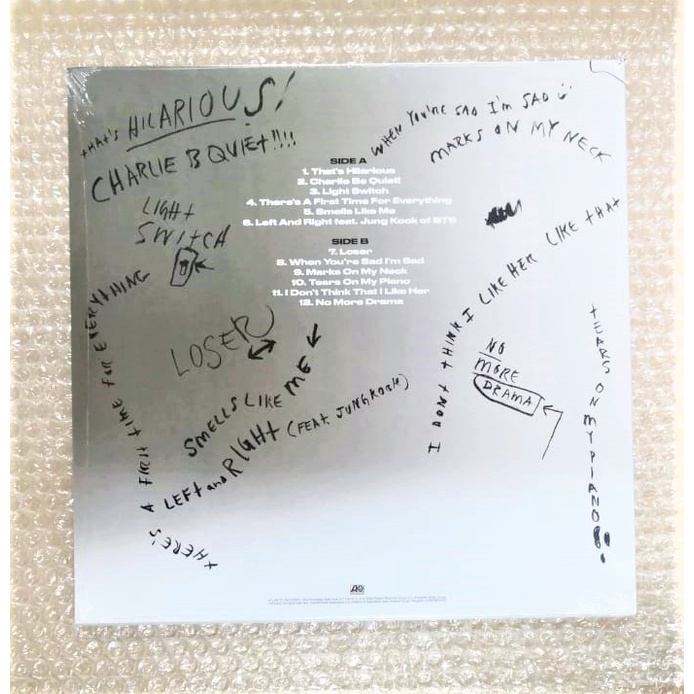 tHAt'S HILARIOUS!
CHARLIE B QUIEt!!!!
LIGHt
SWItCH
WHEN YOU'RE SAD I'm SAD
MARKS ON MY NECK
SIDE A
1. That's Hilarious
2. Charlie Be Quiet!
3. Light Switch
4. There's A First Time For Everything
5. Smells Like Me
6. Left And Right feat. Jung Kook of BTS
SIDE B
7. Loser
8. When You're Sad I'm Sad
9. Marks On My Neck
10. Tears On My Piano
11. I Don't Think That I Like Her
12. No More Drama
tHERE'S A FIRSt tIME FOR EVERYtHING
LOSER
SMELLS LIKE ME
LEFt and RIGHt (FEAt. JUNGKOOK)
I DONt tHINK I LIKE HER LIKE tHAt
NO
MORE
DRAMA
tEARS ON MY PIANO